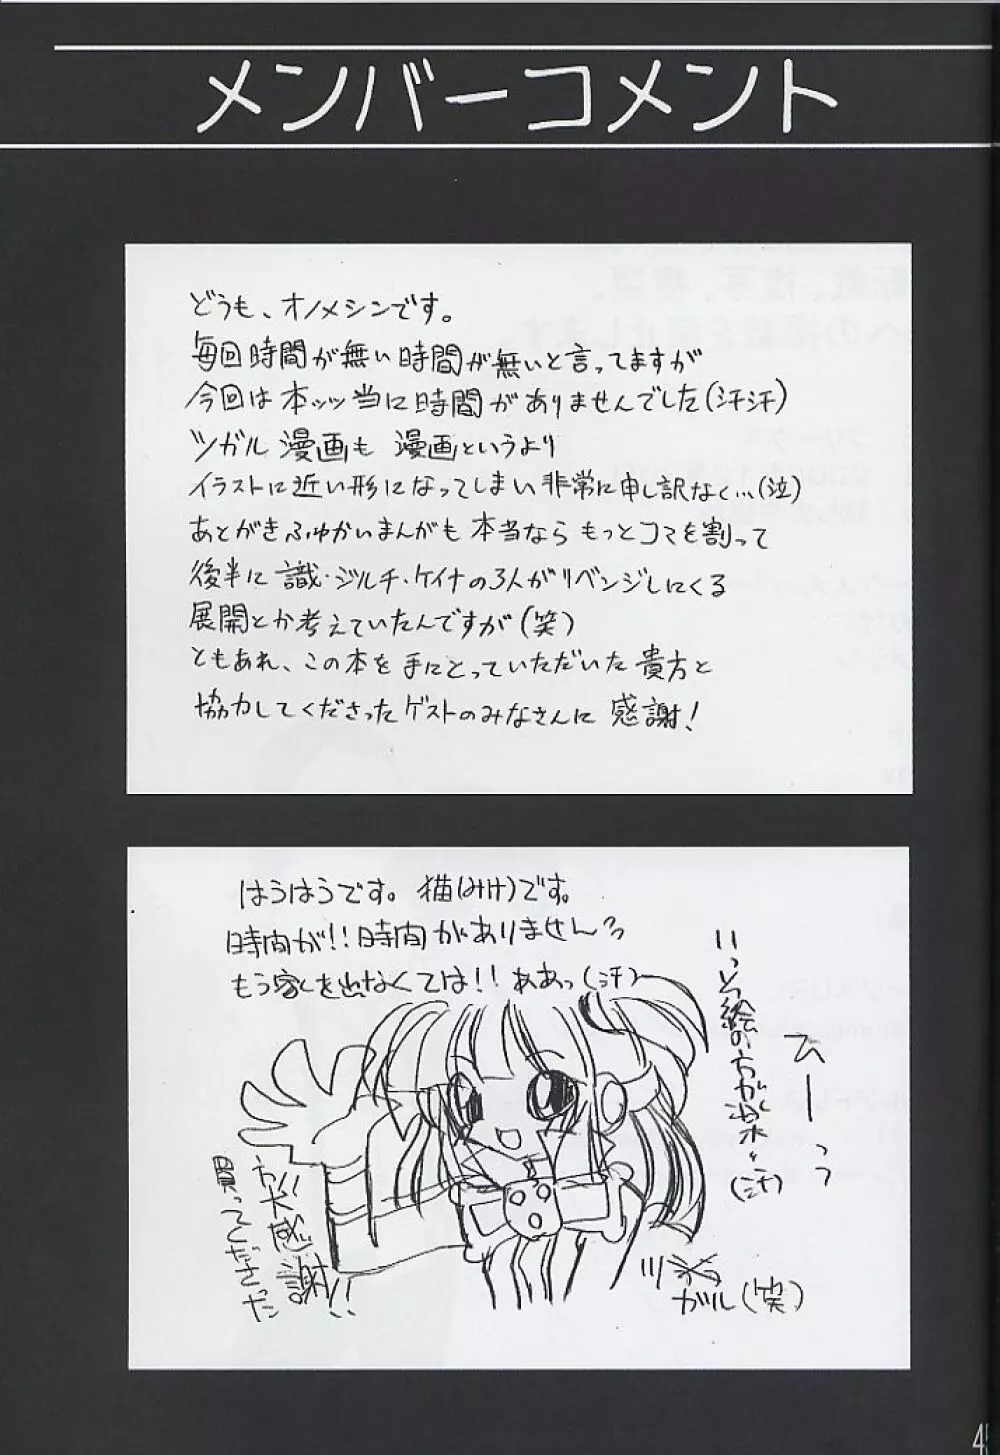 メンバーコメント
どうも、オノメシンです。
毎回時間が無い時間が無いと言ってますが
今回は本ッッ当に時間がありませんでした(汗汗)
ツガル漫画も漫画というより
イラストに近い形になってしまい非常に申し訳なく…(泣)
あとがきふゆかいまんがも本当ならもっとコマを割って
後半に識・ジルチ・ケイナの3人がリベンジしにくる
展開とか考えていたんですが(笑)
ともあれ、この本を手にとっていただいた貴方と
協力してくださったゲストのみなさんに感謝!
はうはうです。猫(みけ)です。
時間が!!時間がありません
もう家を出なくては!!ああっ(汗)
いっそ絵の方が楽
(汗)
ひーっっ
買ってくださった
方大感謝!!
ツ
ガル(笑)
4